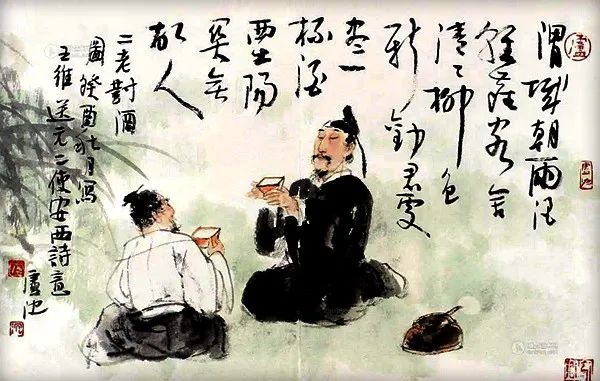 渭城朝雨浥
輕塵客舍
清々柳色
新勸君更
盡一
杯酒
西出陽
關無
故人
二老對酒
圖癸酉秋月寫
王維送元二使安西詩意
盧沈